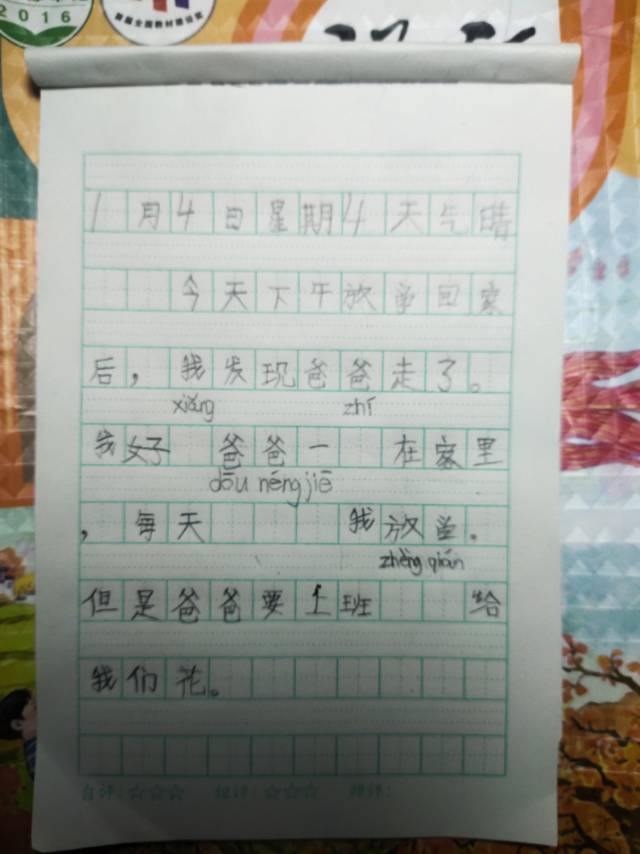 2016
1月4日星期4天气晴
今天下午放学回家
后，我发现爸爸走了。
xiǎng zhí
我好 爸爸一 在家里
dōu néng jiē
，每天 我放学。
zhèng qián
但是爸爸要上班 给
我们花。
自评：☆☆☆ 组评：☆☆☆ 师评：